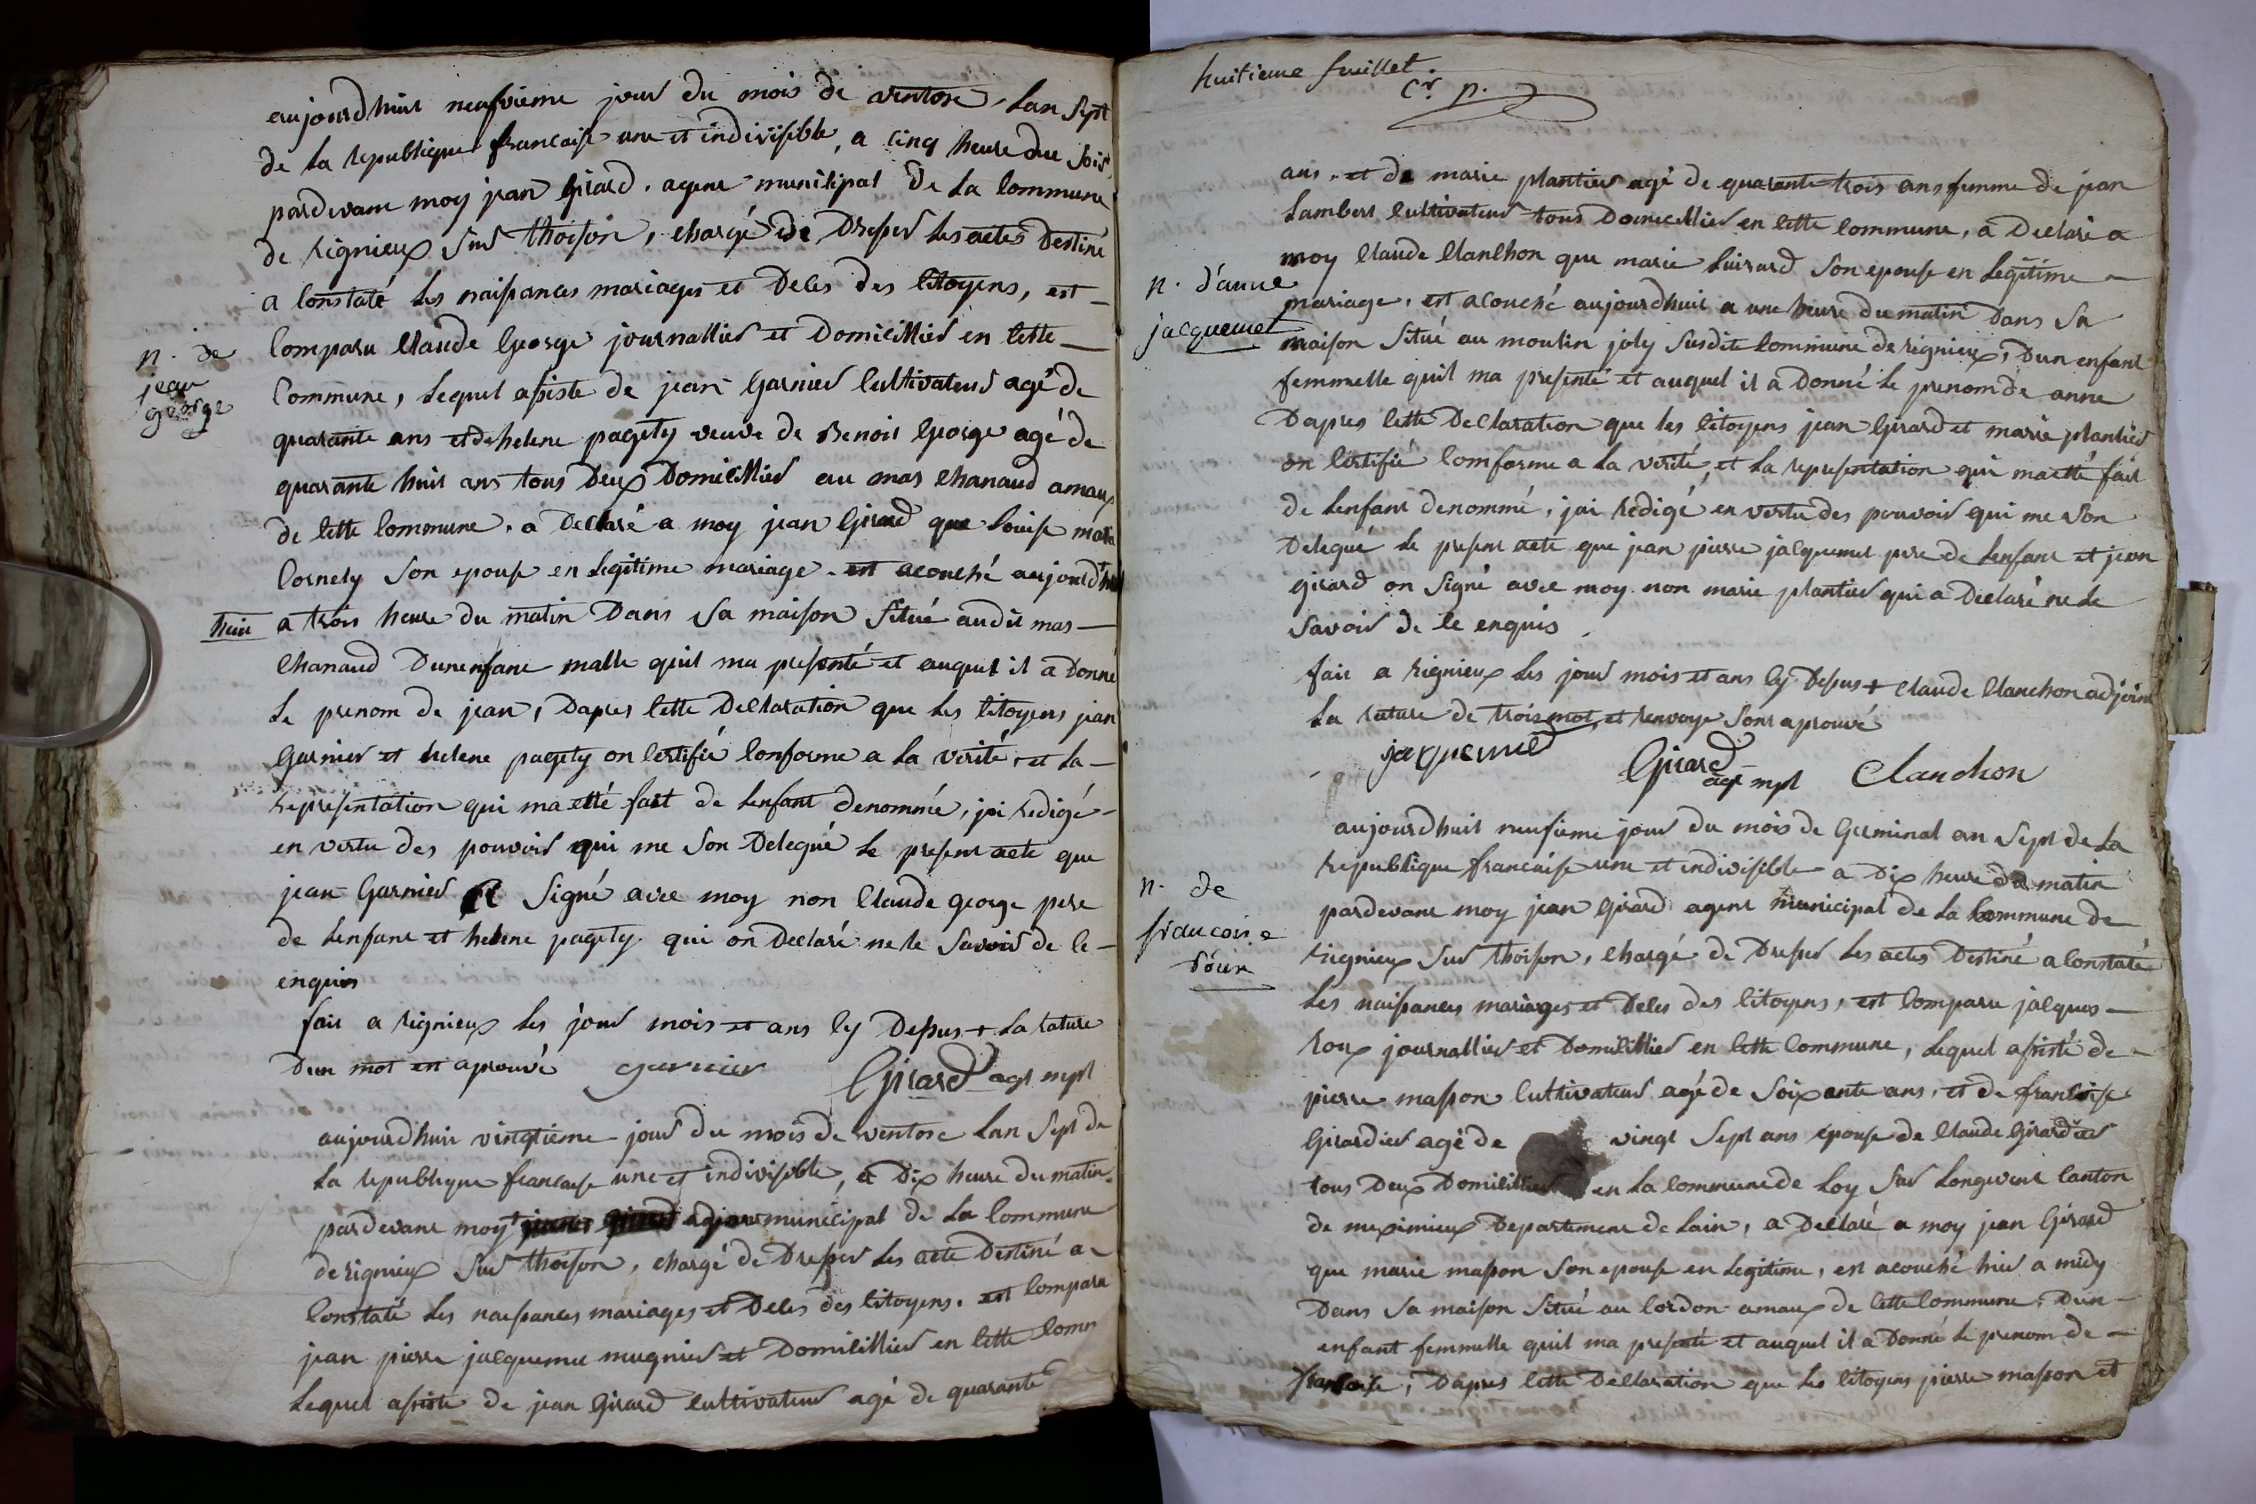 aujourdhuit neufvieme jour du mois de ventose, Lan Sept
de La republique francaise une et indivisible, a cinq heure du Soir
pardevant moy jean Girard. agent municipal De La Commune
de rignieux Sur thoison, chargé de Dresser Les actes Destiné
a Constaté Les naissances mariages et Deces Des Citoyens, est
Comparu Claude George journallier et Domicillier en Cette
n. de
jean
george
Commune, Lequel assisté de jean Garnier Cultivateur agé de
quarante ans et de helene pagety veuve de Benoit George agé de
quarante huit ans tous Deux Domicillier au mas Chanaud amaux
de Cette Commune. a Declaré a moy jean Girard que Louise maria
Cornety Son epouse en Legitime mariage. est acouché aujourd'hui
huit a trois heure du matin Dans Sa maison Situé audit mas
Chanaud Dun enfant malle quil ma presenté et auquel il a Donné
Le prenom de jean, Dapres Cette Declaration que Les Citoyens jean
Garnier et helene pagety on Certifié Conforme a La verité, et La
representation qui ma etté fait de Lenfant denommée, jai redigé
en vertu des pouvoir qui me Son Delegué Le present acte que
jean Garnier Signé avec moy non Claude George pere
de Lenfant et helene pagety. qui on Declaré ne le Savoir de Ce
enquis
fait a rignieux Les jour mois et ans Cy Dessus + La rature
Dun mot est aprouvé garnier Girard agt mpl
aujourdhuit vingtieme jour du mois de ventose Lan Sept de
La republique francaise une et indivisible, a Dix heure du matin
pardevant moy + adjoint municipal de La Commune
de rignieux Sur thoison, chargé de Dresser Les acte Destiné a
Constaté Les naissances mariages et Deces des Citoyens. est Comparu
jean pierre jacquemet mugnier et Domicillier en Cette Comm
Lequel assisté de jean Girard Cultivateur agé de quarante
huitieme feuillet.
Cr. p.
ans. et de marie plantier agé de quarante trois ans femme de jean
Lambert Cultivateur tous Domicillier en Cette Commune, a Declaré a
moy Claude Clanchon que marie Suirard Son epouse en Legitime
n. d'anne
jacquemet
mariage. est acouché aujourdhuit a une heure du matin Dans Sa
maison Situé au moulin joly Susdite Commune de rignieux, Dun enfant
femmelle quil ma presenté et auquel il a Donné Le prenom de anne
Dapres Cette Declaration que Les Citoyens jean Girard et marie plantier
on Certifié Comforme a La verité, et La representation qui ma etté fait
de Lenfant denommé, jai redigé en vertu des pouvoir qui me Son
Delegué Le present acte que jean pierre jacquemet pere de Lenfant et jean
girard on Signé avec moy non marie plantier qui a Declaré ne Le
Savoir de Ce enquis.
fait a rignieux Les jour mois et ans Cy Dessus + Claude Clanchon adjoint
La rature de trois mot, et renvoye Sont aprouvé
jacquemet Girard agt mpl Clanchon
aujourdhuit neufieme jour du mois de Germinal an Sept de La
republique francaise une et indivisible a Dix heure du matin
n. de
francoise
roux
pardevant moy jean Girard agent municipal de La Commune de
rignieux Sur thoison, chargé de Dresser Les actes Destiné a Constaté
Les naissances mariages et Deces des Citoyens, est Comparu jacques
roux journallier et Domicillier en Cette Commune, Lequel assisté de
pierre masson Cultivateur agé de Soixante ans, et de francoise
Girardier agé de vingt Sept ans epouse de Claude Girardier
tous Deux Domicillier en La Commune de Loy Sur Longvent Canton
de meximieux Departement de Lain, a Declaré a moy jean Girard
que marie masson Son epouse en Legitime, est acouché hier a midy
Dans Sa maison Situé au Cordon amaux de Cette Commune, Dun
enfant femmelle quil ma presenté et auquel il a Donné Le prenom de
francoise, Dapres Cette Declaration que Les Citoyens pierre masson et